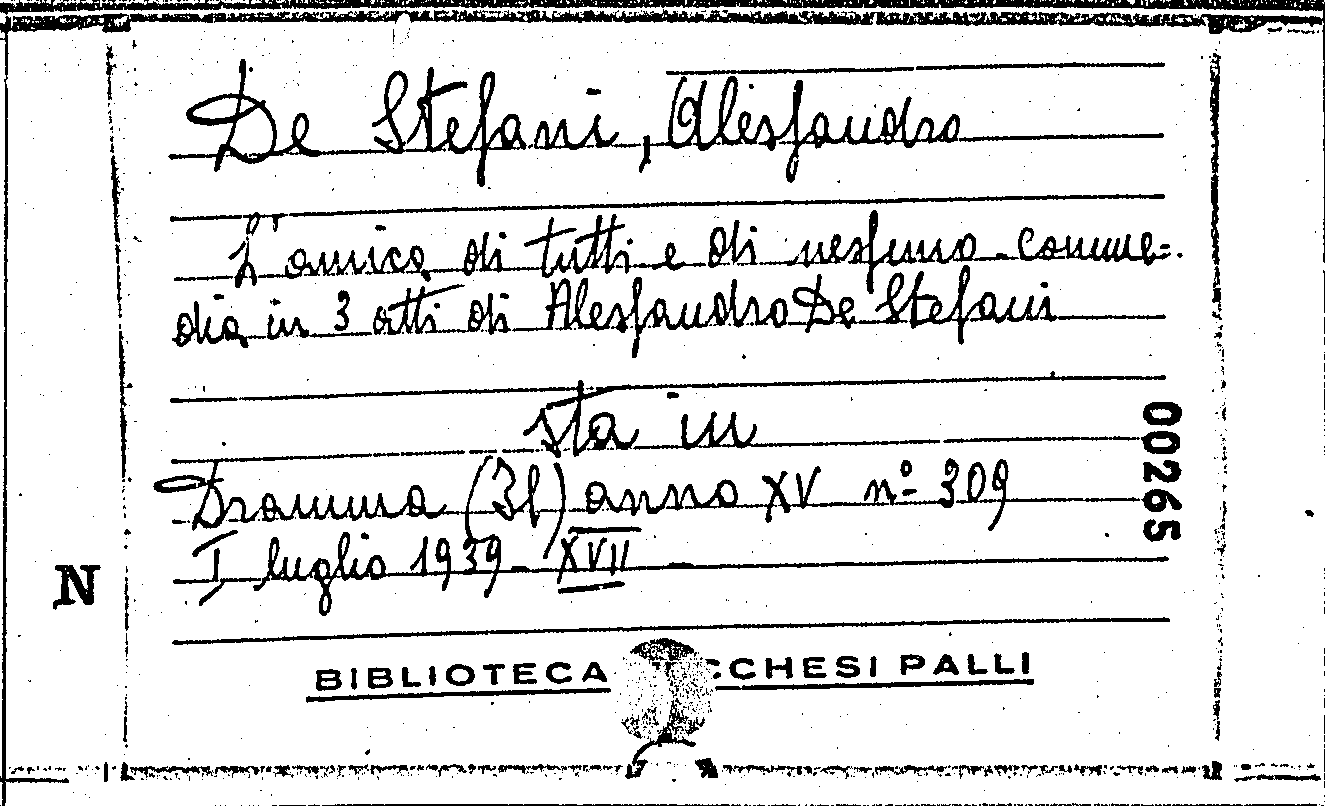 De Stefani, Alessandro
L'amico di tutti e di nessuno. Comme=
dia in 3 atti di Alessandro De Stefani
sta in
Dramma (Il) anno XV n° 309
I luglio 1939 - XVII -
N
00265
BIBLIOTECA CCHESI PALLI